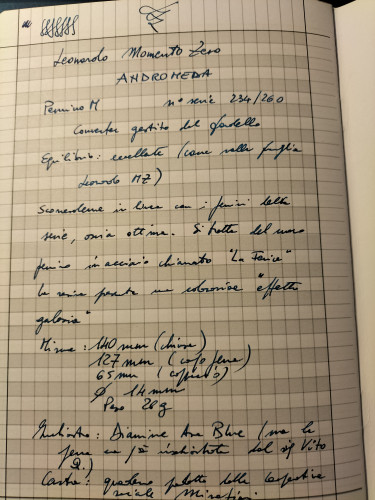 Leonardo Momento Zero
ANDROMEDA
Pennino M n° serie 234/260
Converter gestito dal fondello
Equilibrio: eccellente (come nella famiglia
Leonardo MZ)
in linea con i pennini della
serie, ossia ottima. Si tratta del nuovo
pennino in acciaio chiamato "La Fenice"
La resina presenta una colorazione "effetto
galassia"
Misure: 140 mm (chiusa)
127 mm (corpo penna)
65 mm (cappuccio)
Ø 14 mm
Peso 28 g
Inchiostro: Diamine Blue (ma la
penna era già inchiostrata dal sig. Vito
Carta: quaderno della